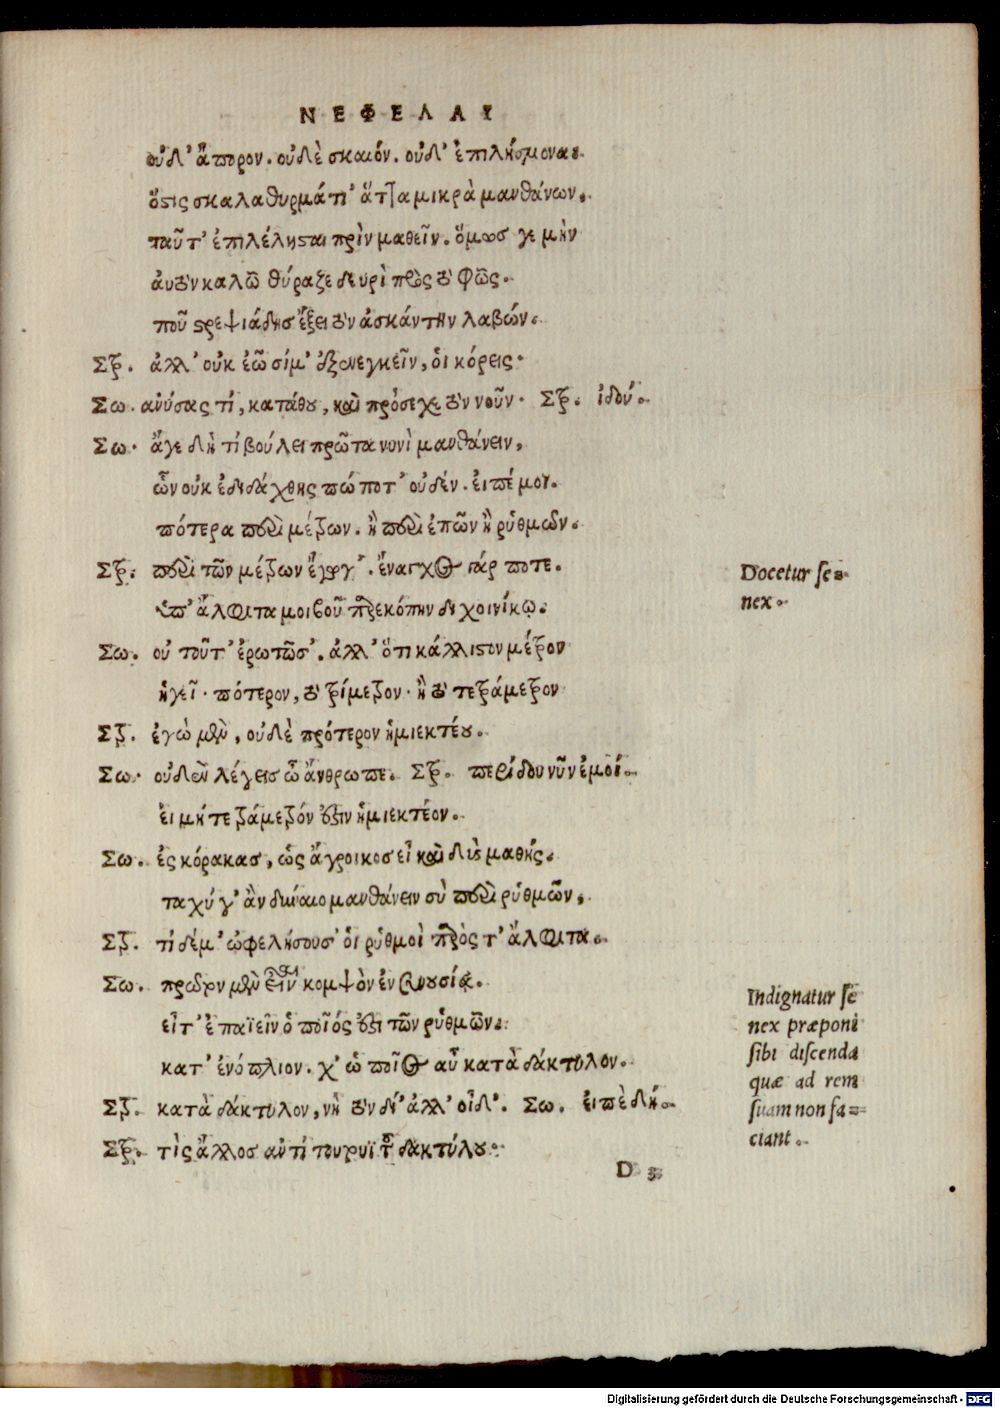 ΝΕΦΕΛΑΙ
οὐδ' ἄπορον. οὐδὲ σκαιόν. οὐδ' ἐπιλήσμονα.
ὅστις σκαλαθυρμάτι' ἄττα μικρὰ μανθάνων,
ταῦτ' ἐπιλέλησται πρὶν μαθεῖν. ὅμωσ γε μὴν
αὐτὸν καλῶ θύραζε δευρὶ πρὸς τὸ φῶς.
ποῦ στρεψιάδησ ἔξει τὸν ἀσκάντην λαβών.
Στρ. ἀλλ' οὐκ ἐῶσί μ' ἐξενεγκεῖν, ὁι κόρεις.
Σω. ανύσας τί, κατάθου, καὶ πρόσεχε τὸν νοῦν. Στρ. ἰδού.
Σω. ἄγε δὴ τί βούλει πρῶτα νυνὶ μανθάνειν,
ὧν οὐκ ἐδιδάχθης πώποτ' οὐδέν. ἐιπέ μοι.
πότερα περὶ μέτρων. ἢ περὶ ἐπῶν ἢ ῥύθμων.
Στρ. περὶ τῶν μέτρων ἔγωγ'. ἔναγχος γάρ ποτε.
ὑπ' ἀλφιταμοιβοῦ παρεκόπην διχοινίκῳ.
Σω. οὐ τοῦτ' ἐρωτῶσ'. ἀλλ' ὅτι κάλλιστον μέτρον
ἡγεῖ. πότερον, τὸ τρίμετρον. ἢ τὸ τετράμετρον
Στρ. ἐγὼ μὲν, οὐδὲ πρότερον ἡμιεκτέου.
Σω. οὐδὲν λέγεισ ὦ ἄνθρωπε. Στρ. περίδου νῦν ἐμοί.
ἐι μή τετράμετρόν ἐστιν ἡμιεκτέον.
Σω. ἐς κόρακασ, ὡς ἄγροικοσ εἶ καὶ δυσμαθής.
ταχύ γ' ἂν δύναιο μανθάνειν σὺ περὶ ῥύθμῶν,
Στρ. τί δέ μ' ὠφελήσουσ' ὁι ῥύθμοὶ πρὸς τ' ἄλφιτα.
Σω. πρῶτον μὲν εἶναι κομψὸν ἐν συνουσίᾳ.
εἶτ' ἐπαϊεῖν ὁ ποῖός ἐστι τῶν ῥύθμῶν.
κατ' ἐνόπλιον. χ' ὡ ποῖος αὖ κατὰ δάκτυλον.
Στρ. κατὰ δάκτυλον, νὴ τὸν δί' ἀλλ' οἶδ'. Σω. ἐιπὲ δή.
Στρ. τὶς ἄλλοσ αντὶ τουτουῒ τοῦ δακτύλου.
Docetur se=
nex.
Indignatur se
nex præponi
sibi discenda
quæ ad rem
suam non fa=
ciant.
D 3
Digitalisierung gefördert durch die Deutsche Forschungsgemeinschaft - DFG